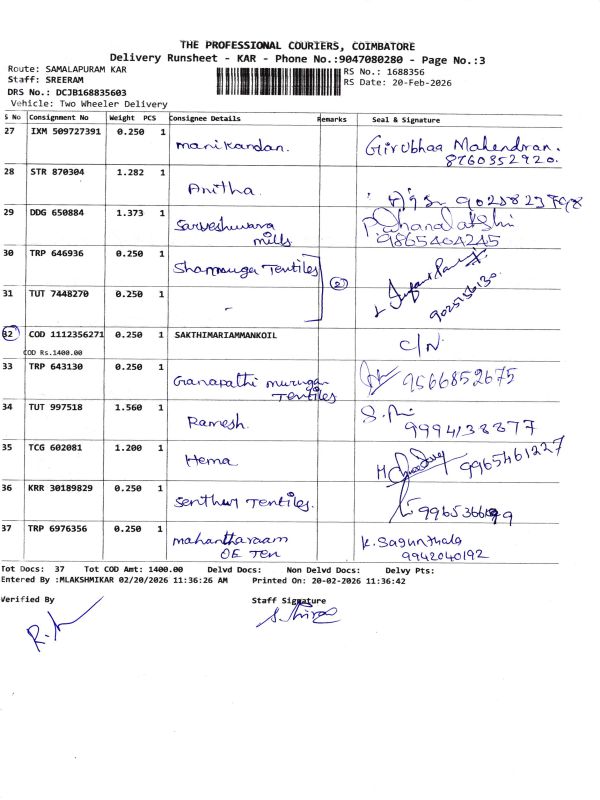 THE PROFESSIONAL COURIERS, COIMBATORE
Delivery Runsheet - KAR - Phone No.:9047080280 - Page No.:3
Route: SAMALAPURAM KAR
RS No.: 1688356
Staff: SREERAM
RS Date: 20-Feb-2026
DRS No.: DCJB168835603
Vehicle: Two Wheeler Delivery
S No Consignment No Weight PCS Consignee Details Remarks Seal & Signature
27 IXM 509727391 0.250 1 manikandan. Girubhaa Mahendran.
8760352920.
28 STR 870304 1.282 1 Anitha.
29 DDG 650884 1.373 1 Sarveshwara mills P. Dhanalakshi
9865404245
30 TRP 646936 0.250 1 Shanmuga Tentiles (2)
31 TUT 7448270 0.250 1 9025156130
32 COD 1112356271 0.250 1 SAKTHIMARIAMMANKOIL C/N.
COD Rs.1400.00
33 TRP 643130 0.250 1 Ganapathi murugan Tentiles 9566852675
34 TUT 997518 1.560 1 Ramesh.
9994138877
35 TCG 602081 1.200 1 Hema 9965461227
36 KRR 30189829 0.250 1 Senthur Tentiles.
37 TRP 6976356 0.250 1 mahantharaam OE Ten K. Sagunthala
9942040192
Tot Docs: 37 Tot COD Amt: 1400.00 Delvd Docs: Non Delvd Docs: Delvy Pts:
Entered By :MLAKSHMIKAR 02/20/2026 11:36:26 AM Printed On: 20-02-2026 11:36:42
Verified By Staff Signature